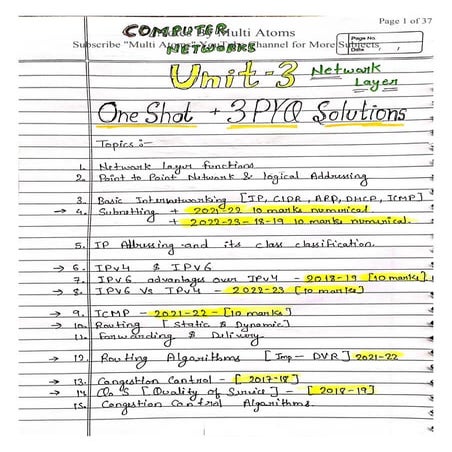 Page 1 of 37
COMPUTER Multi Atoms
Subscribe "Multi Atoms" YouTube Channel for More Subjects
NETWORKS
Page No.
Date
Unit-3 Network Layer
One Shot + 3 PYQ Solutions
Topics :-
1. Network Layer functions
2. Point to Point Network & logical Addressing
3. Basic Internetworking [IP, CIDR, ARP, DHCP, ICMP]
→ 4. Subnetting + 2021-22 10 marks numerical.
+ 2022-23-18-19 10 marks numerical.
5. IP Addressing and its class classification.
→ 6. IPv4 & IPV6
7. IPV6 advantages over IPv4 - 2018-19 [10 marks]
→ 8. IPV6 Vs IPv4 - 2022-23 - [10 marks]
→ 9. ICMP - 2021-22 - [10 marks]
→ 10. Routing [Static & Dynamic]
11. Forwarding & Delivery.
→ 12. Routing Algorithms [Imp - DVR] 2021-22
→ 13. Congestion Control - [2017-18]
→ 14. QoS [Quality of Service] - [2018-19]
15. Congestion Control Algorithms.